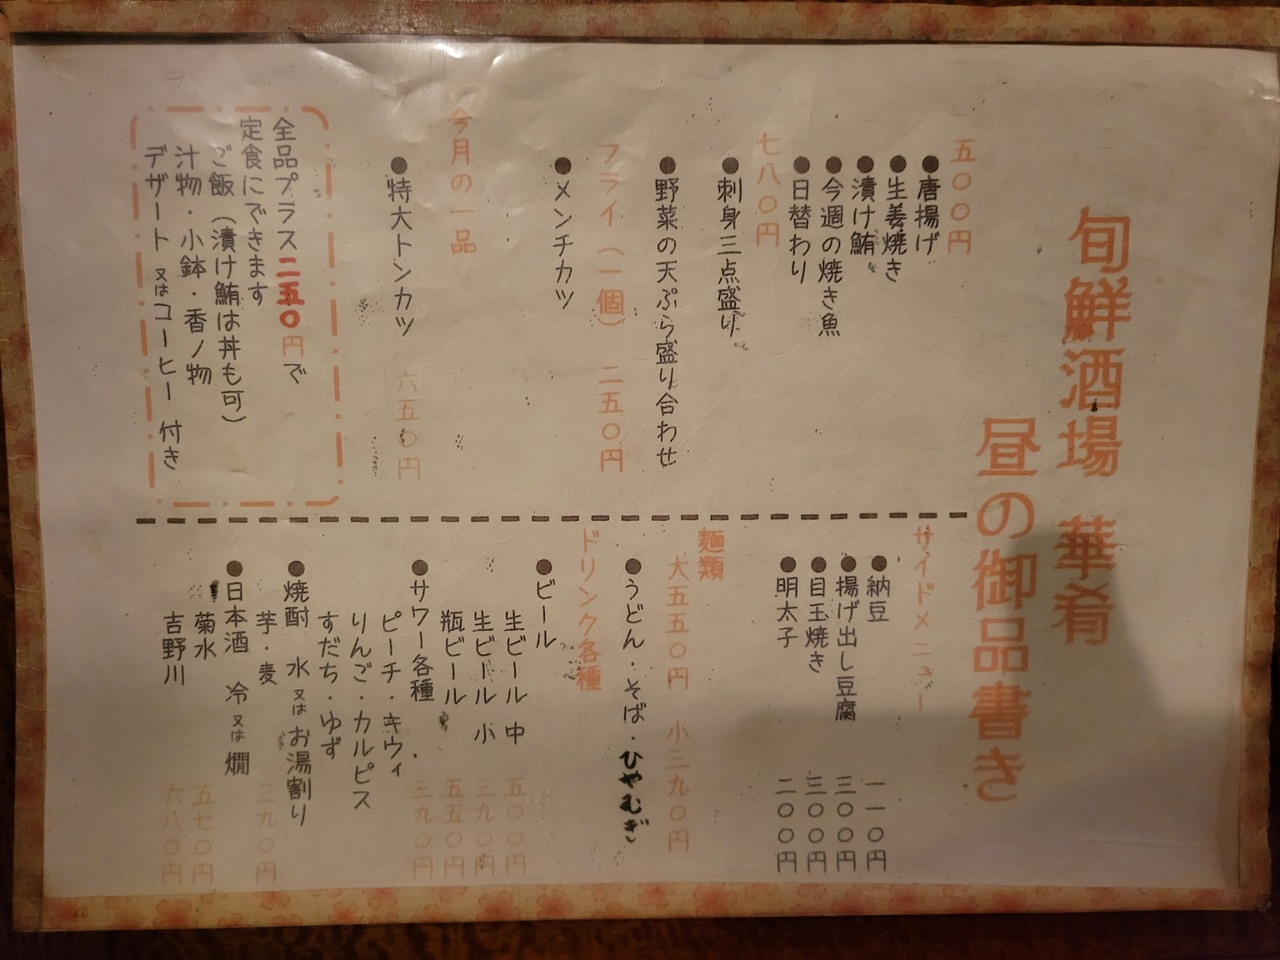 旬鮮酒場 華肴
昼の御品書き
五〇〇円
●唐揚げ
●生姜焼き
●漬け鮪
●今週の焼き魚
●日替わり
七八〇円
●刺身三点盛り
●野菜の天ぷら盛り合わせ
フライ（一個） 二五〇円
●メンチカツ
今月の一品
●特大トンカツ 六五〇円
全品プラス二五〇円で
定食にできます
ご飯（漬け鮪は丼も可）
汁物・小鉢・香ノ物
デザート 又はコーヒー 付き
サイドメニュー
●納豆 一一〇円
●揚げ出し豆腐 三〇〇円
●目玉焼き 三〇〇円
●明太子 二〇〇円
麺類
大五五〇円 小三九〇円
●うどん・そば・ひやむぎ
ドリンク各種
●ビール
生ビール 中 五〇〇円
生ビール 小 三九〇円
瓶ビール 五五〇円
●サワー各種 三九〇円
ピーチ・キウィ
りんご・カルピス
すだち・ゆず
●焼酎 水 又は お湯割り
芋・麦 三九〇円
●日本酒 冷 又は 燗
菊水 五七〇円
吉野川 六八〇円